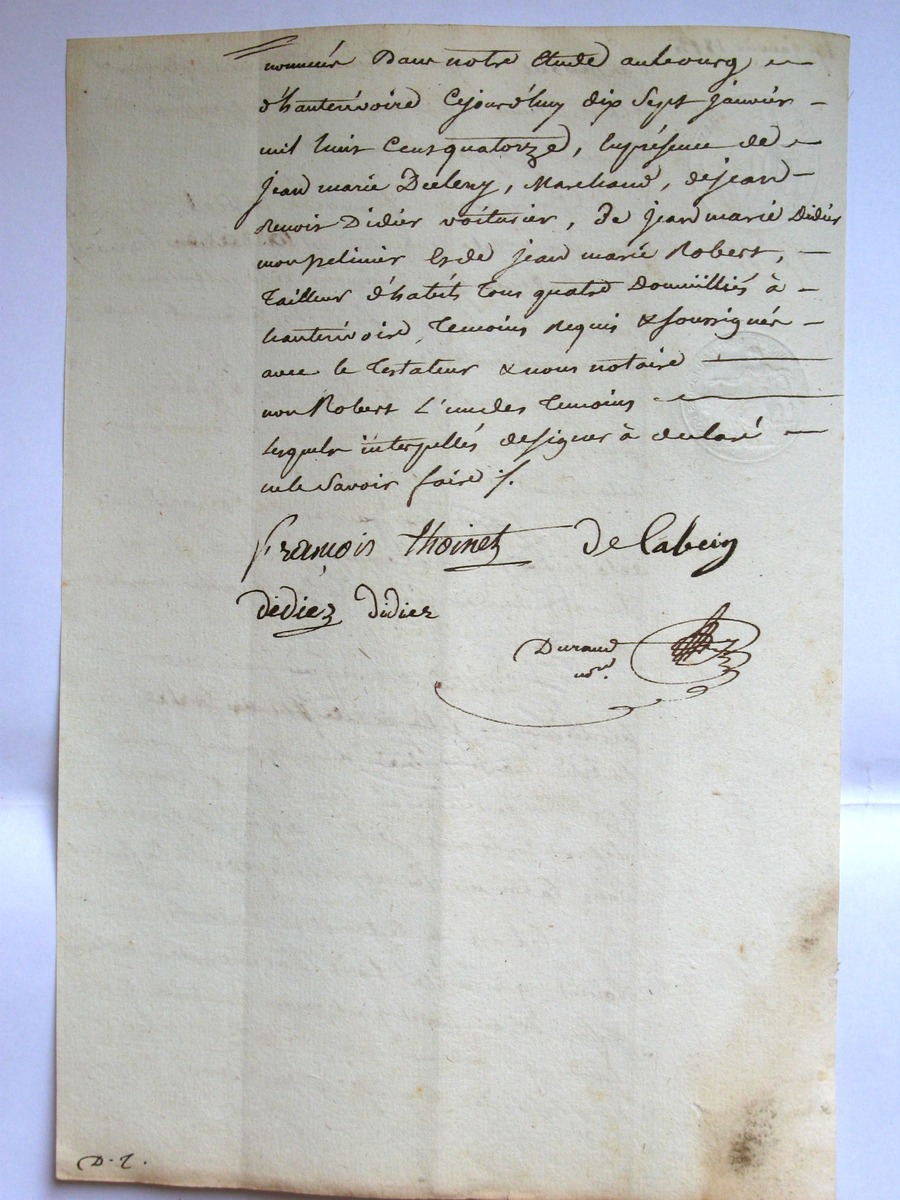 nommées Dans notre Etude au bourg
d'hauterivoire Cejourd'huy dix Sept Janvier
mil huit Cent quatorze, En présence de
Jean marie Marchand, de jean
Benoit Didier voiturier, De jean marie Didier
Et de jean marie Robert,
Tailleur d'habits Tous quatre Domiciliés à
hauterivoire, Temoins Requis & soussignés
avec le Testateur & nous notaire
non Robert L'un des Temoins
lequel interpellés de signer à declaré
ne le Savoir faire ./.
françois thoinet
didier didier
Durand
nore.
D. 2.